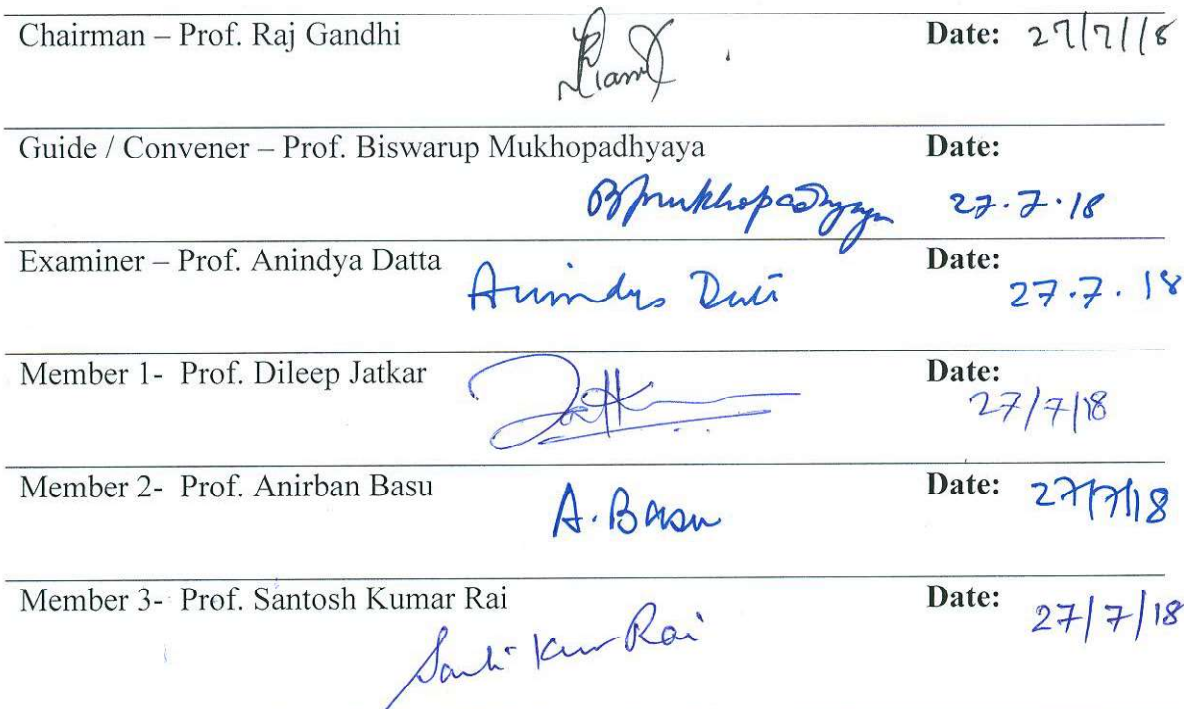 Chairman – Prof. Raj Gandhi Date: 27/7/18
Guide / Convener – Prof. Biswarup Mukhopadhyaya Date:
BMukhopadhyaya 27.7.18
Examiner – Prof. Anindya Datta Date:
Anindya Datta 27.7.18
Member 1- Prof. Dileep Jatkar Date:
27/7/18
Member 2- Prof. Anirban Basu Date: 27/7/18
A. Basu
Member 3- Prof. Santosh Kumar Rai Date: 27/7/18
Kumar Rai